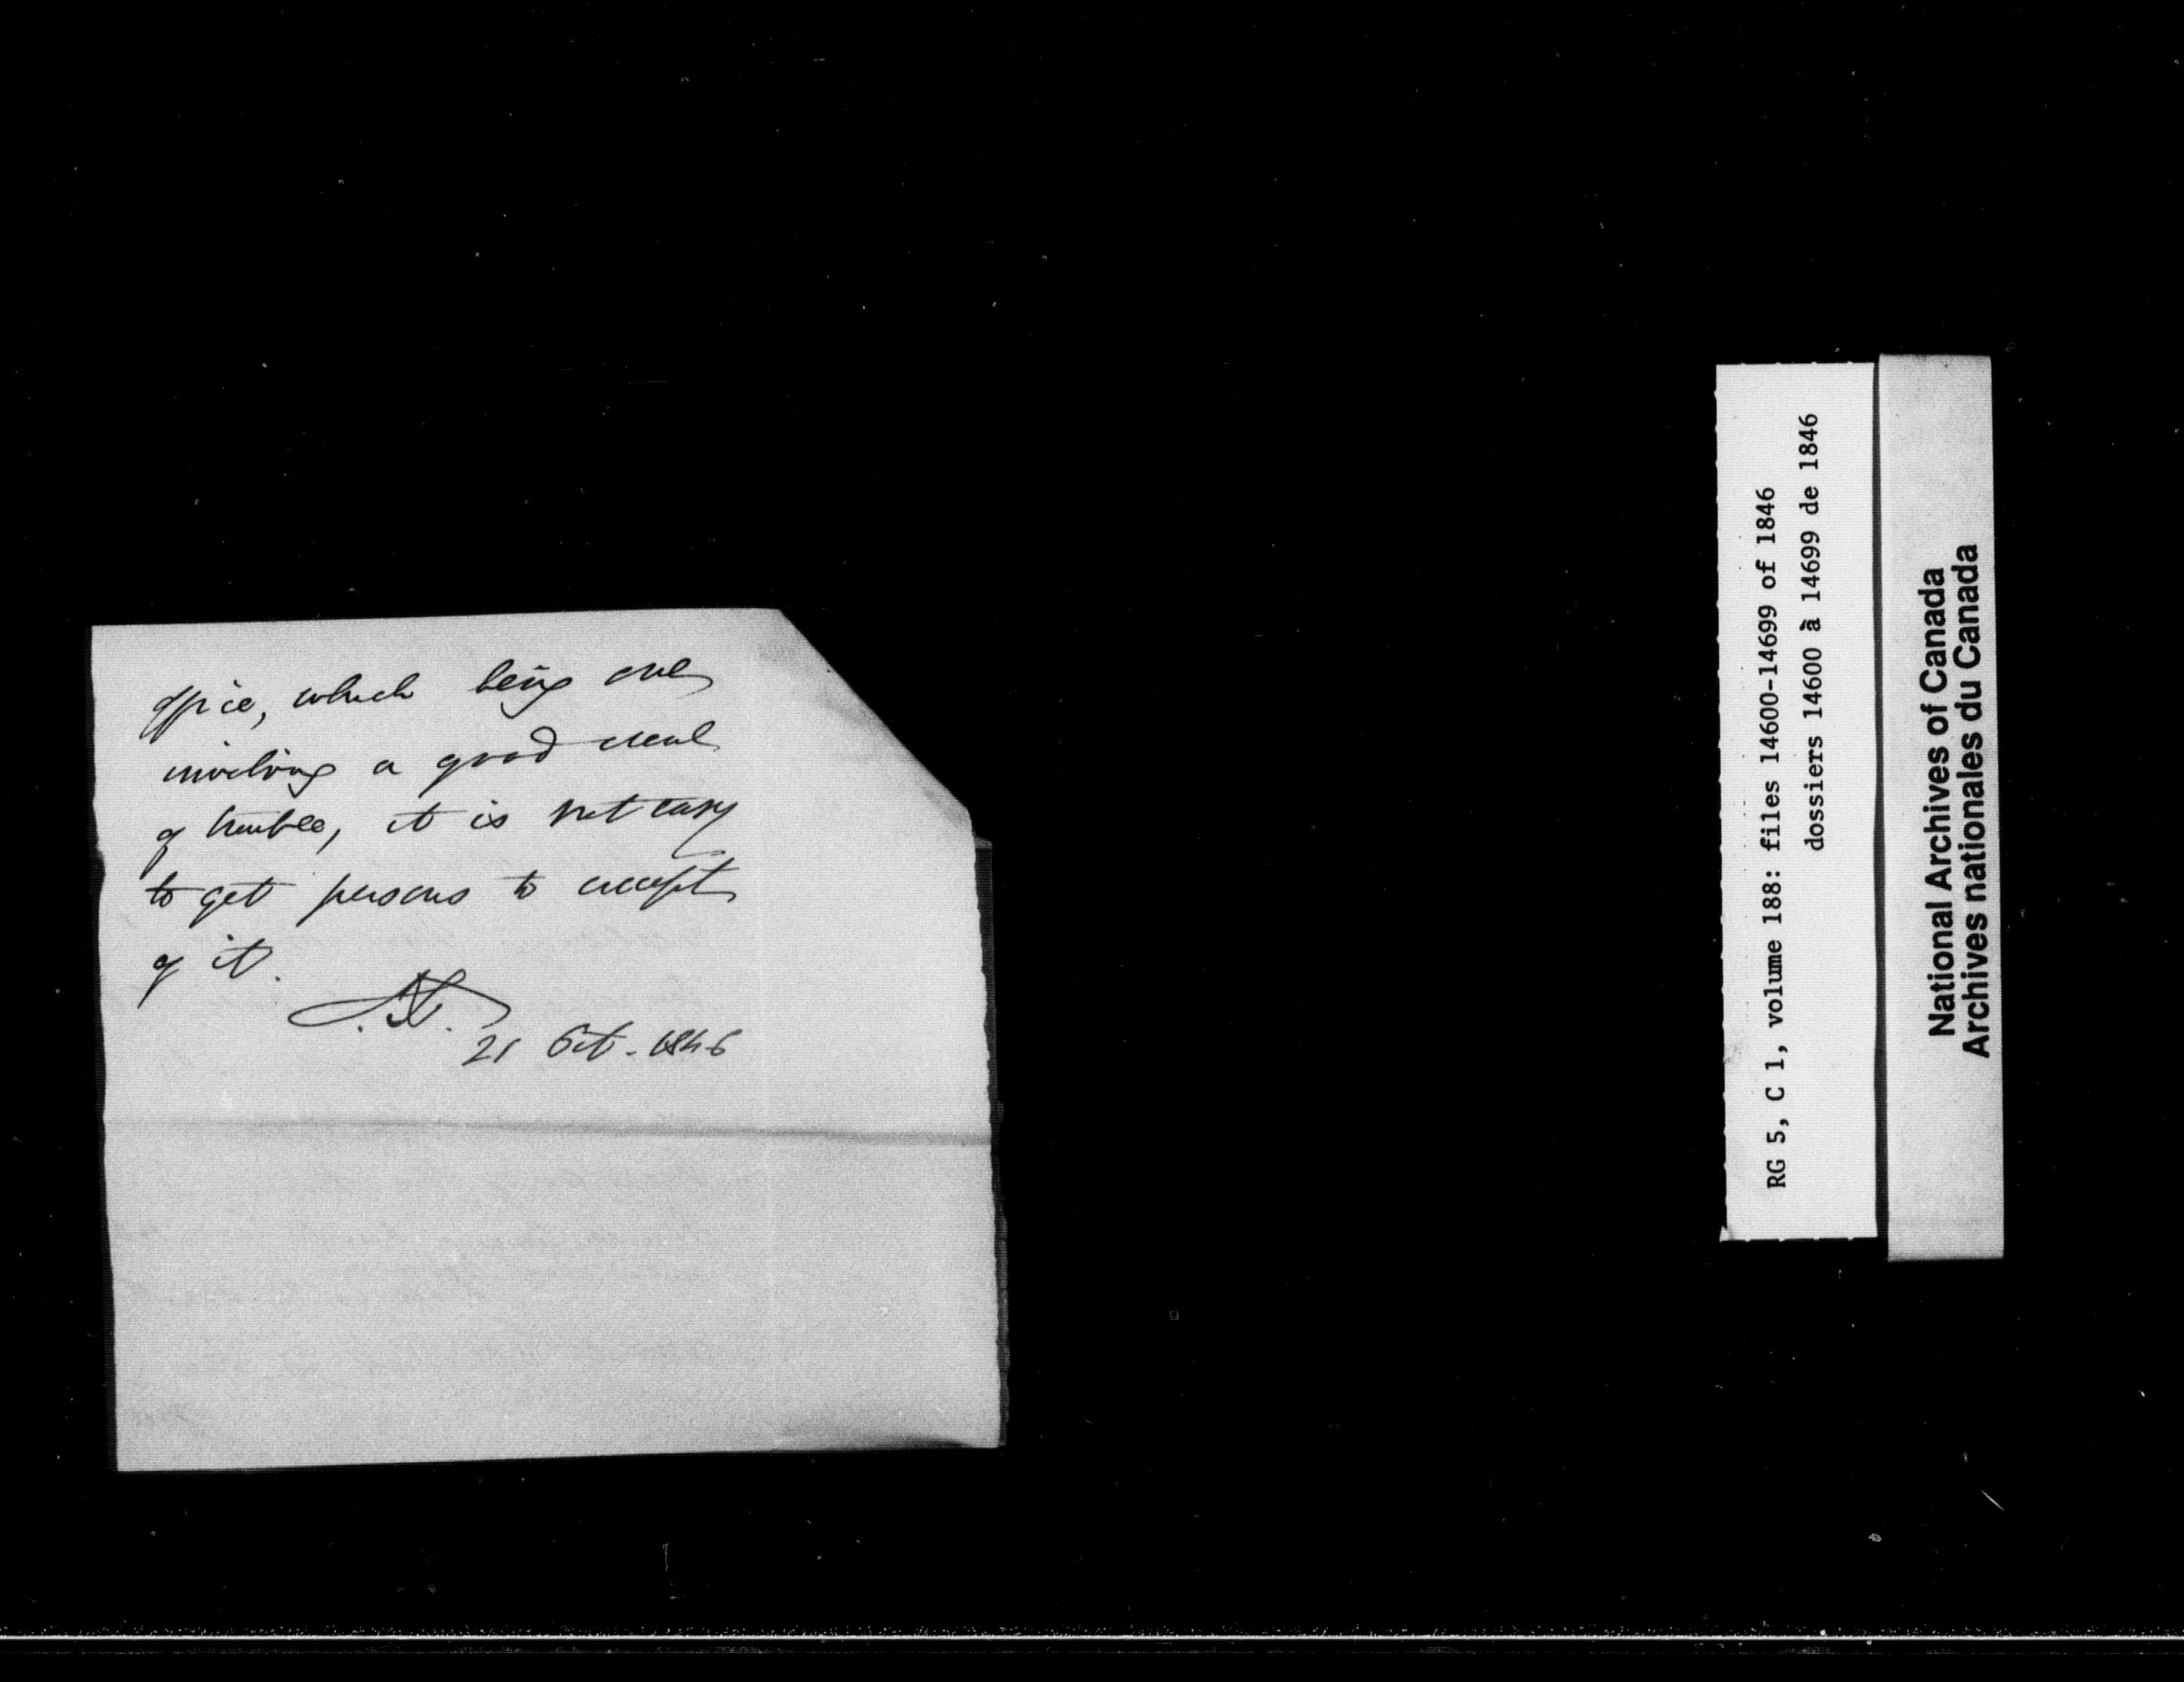 office, which being one
involving a good deal
of trouble, it is not easy
to get persons to accept
of it.
21 Oct. 1846
RG 5, C 1, volume 188: files 14600-14699 of 1846
dossiers 14600 à 14699 de 1846
National Archives of Canada
Archives nationales du Canada